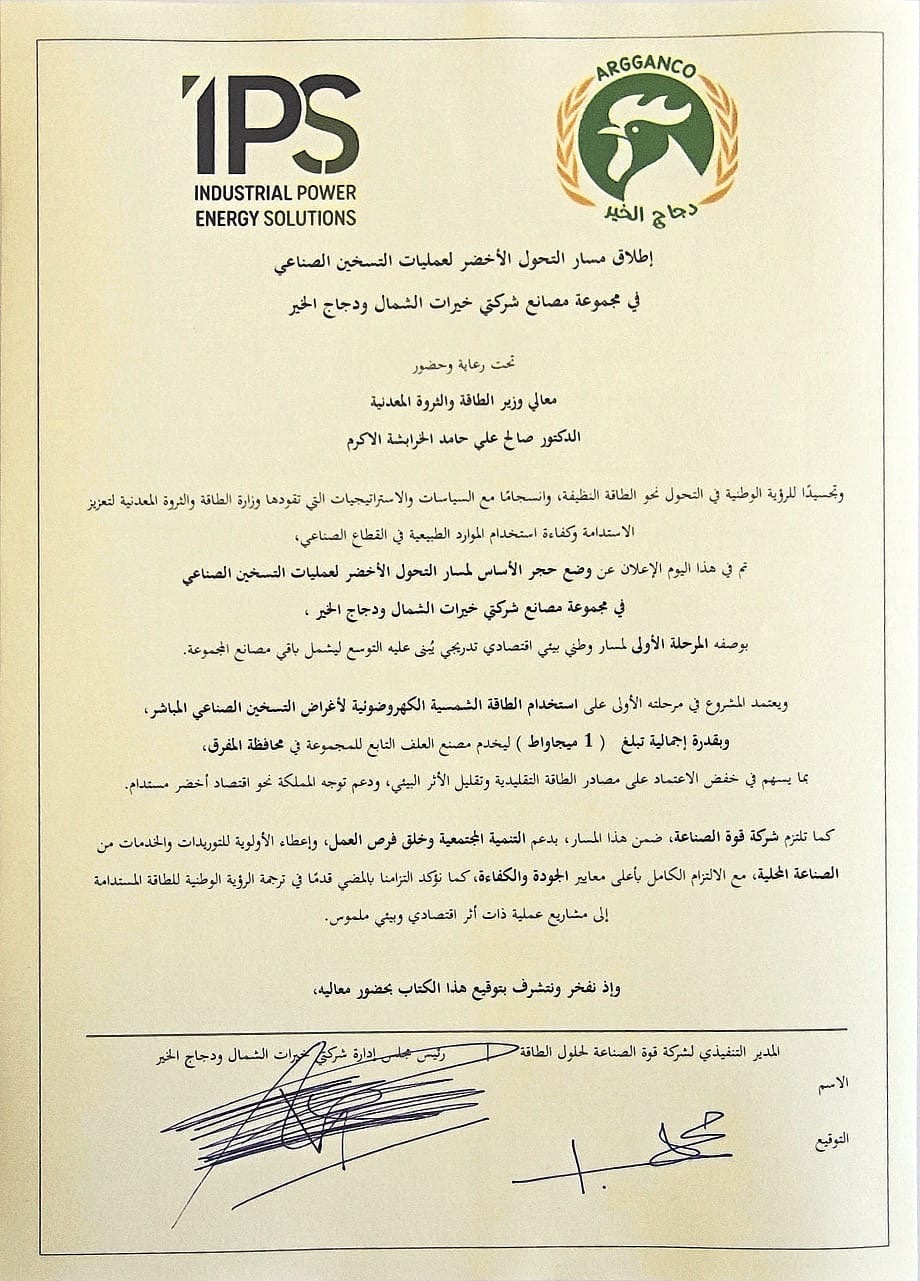 IPS
INDUSTRIAL POWER
ENERGY SOLUTIONS
ARGGANCO
دجاج الخير
إطلاق مسار التحول الأخضر لعمليات التسخين الصناعي
في مجموعة مصانع شركتي خيرات الشمال ودجاج الخير
تحت رعاية وحضور
معالي وزير الطاقة والثروة المعدنية
الدكتور صالح علي حامد الخرابشة الاكرم
وتجسيدًا للرؤية الوطنية في التحول نحو الطاقة النظيفة، وانسجامًا مع السياسات والاستراتيجيات التي تقودها وزارة الطاقة والثروة المعدنية لتعزيز
الاستدامة وكفاءة استخدام الموارد الطبيعية في القطاع الصناعي،
تم في هذا اليوم الإعلان عن وضع حجر الأساس لمسار التحول الأخضر لعمليات التسخين الصناعي
في مجموعة مصانع شركتي خيرات الشمال ودجاج الخير ،
بوصفه المرحلة الأولى لمسار وطني بيئي اقتصادي تدريجي يُبنى عليه التوسع ليشمل باقي مصانع المجموعة.
ويعتمد المشروع في مرحلته الأولى على استخدام الطاقة الشمسية الكهروضوئية لأغراض التسخين الصناعي المباشر،
وبقدرة إجمالية تبلغ ( 1 ميجاواط ) ليخدم مصنع العلف التابع للمجموعة في محافظة المفرق،
بما يسهم في خفض الاعتماد على مصادر الطاقة التقليدية وتقليل الأثر البيئي، ودعم توجه المملكة نحو اقتصاد أخضر مستدام.
كما تلتزم شركة قوة الصناعة، ضمن هذا المسار، بدعم التنمية المجتمعية وخلق فرص العمل، وإعطاء الأولوية للتوريدات والخدمات من
الصناعة المحلية، مع الالتزام الكامل بأعلى معايير الجودة والكفاءة، كما نؤكد التزامنا بالمضي قدمًا في ترجمة الرؤية الوطنية للطاقة المستدامة
إلى مشاريع عملية ذات أثر اقتصادي وبيئي ملموس.
وإذ نفخر ونتشرف بتوقيع هذا الكتاب بحضور معاليه،
المدير التنفيذي لشركة قوة الصناعة لحلول الطاقة
رئيس مجلس إدارة شركتي خيرات الشمال ودجاج الخير
الاسم
التوقيع